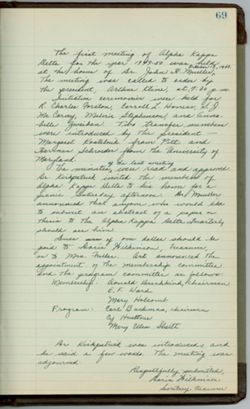 69
The first meeting of Alpha Kappa
Delta for the year 1949-50 was held
at the home of Dr. John H. Mueller.
The meeting was called to order by
the president, Arthur Kline, at 7:30 p.m.
Initiation ceremonies were held for
R. Charles
Mc Coray, Melvin Stephenson, and Anna-
belle Two transfer members
were introduced by the president—
Margaret from Pitt and
Barbara Schroeder from the University of
Maryland.
of the last meeting
The minutes were read and approved.
Dr. Kirkpatrick invited the members of
Alpha Kappa Delta to his home for a
Saturday afternoon. Dr. Mueller
announced that anyone who would like
to submit an abstract of a paper or
thesis to the Alpha Kappa Delta Quarterly
should see him.
Dues of one dollar should be
paid to Maria Hickman, Treasurer,
or to Mrs. Fuller. Art announced the
appointment of the membership committee
and the program committee as follows:
Membership: Arnold Chairman
E. F. Ward
Mary Holcomb
Program: Carl Backman, chairman
Cy
Mary Ellen
Dr. Kirkpatrick was introduced, and
he said a few words. The meeting was
adjourned.
Respectfully submitted
Maria Hickman
Secretary Treasurer